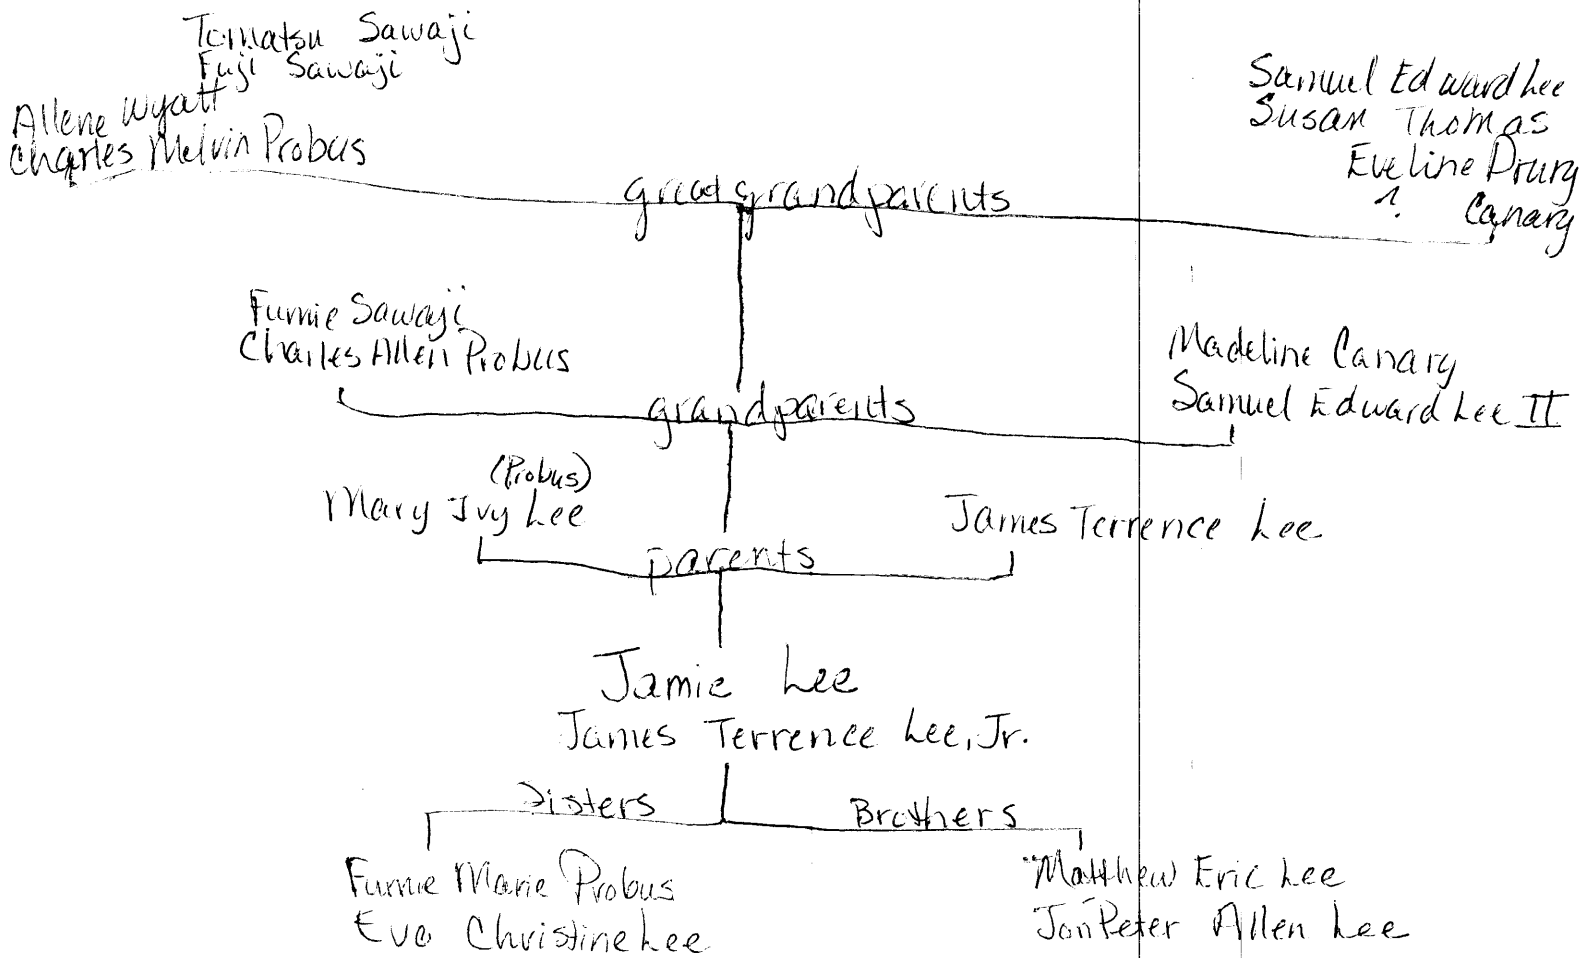 Tomatsu Sawaji
Fuji Sawaji
Allene Wyatt
Charles Melvin Probus
Samuel Edward Lee
Susan Thomas
Eveline Drury
? Canary
great grandparents
Fumie Sawaji
Charles Allen Probus
Madeline Canary
Samuel Edward Lee II
grandparents
(Probus)
Mary Ivy Lee
James Terrence Lee
parents
Jamie Lee
James Terrence Lee, Jr.
Sisters
Brothers
Fumie Marie Probus
Eva Christine Lee
Matthew Eric Lee
Jon Peter Allen Lee